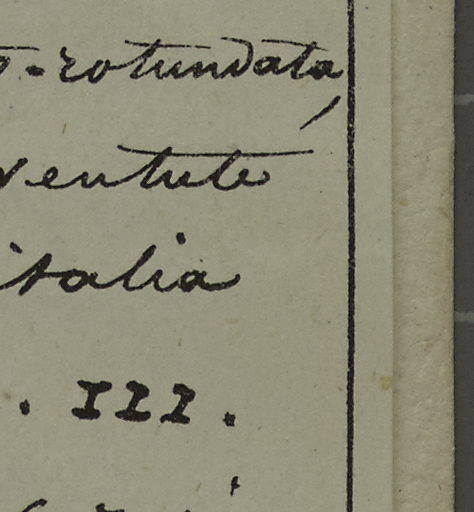 o-rotundata,
ventute
italia
. III.